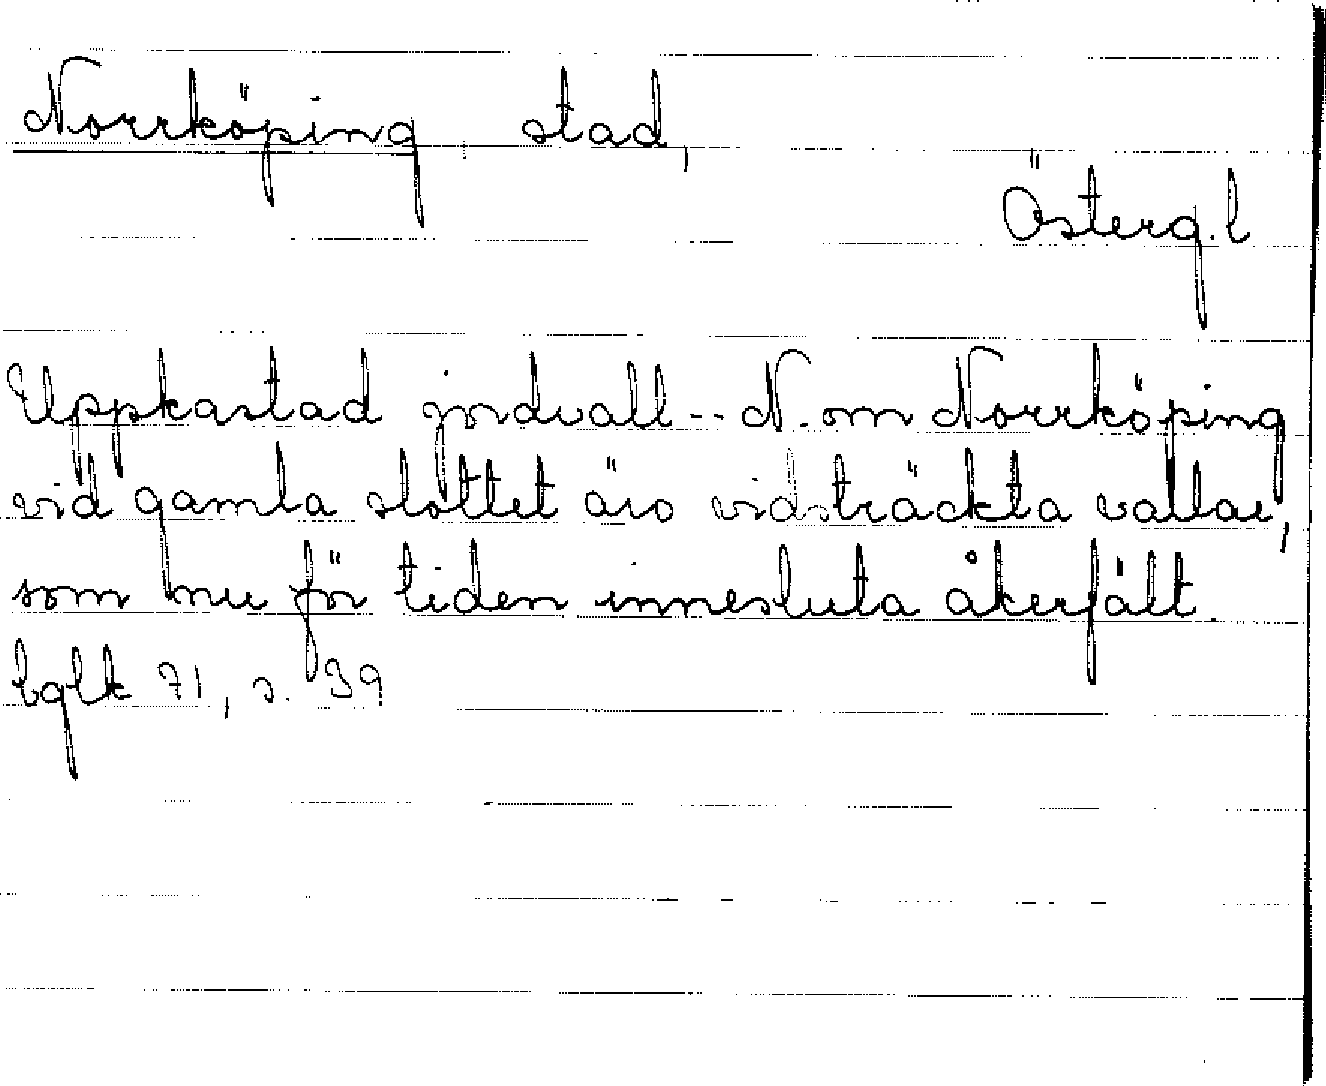 Norrköping stad,
Österg.l
Uppkastad jordvall -- N. om Norrköping
vid gamla slottet äro vidsträckta vallar,
som nu för tiden innesluta åkerfält.
bglk 71, s. 39